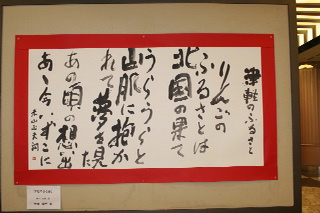 津軽のふるさと
りんごの
ふるさとは
北国の果て
うらうらと
山脈に抱か
れて夢を見た
あの頃の想い出
あゝ今いずこに